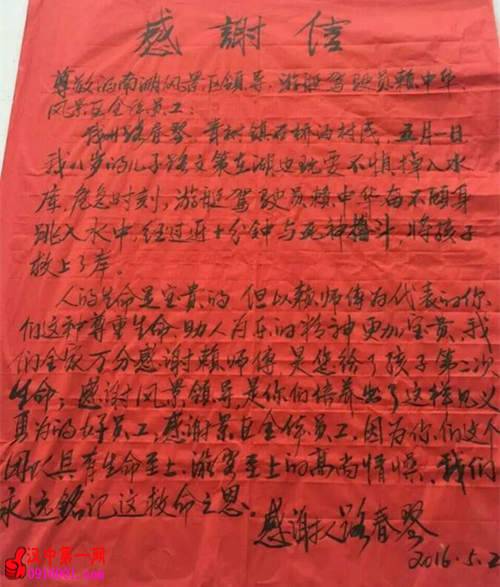 感謝信
尊敬的南湖风景区领导、游艇驾驶员赖中华、
风景区全体员工:
我叫路春琴, 青树镇石桥沟村民, 五月一日
我八岁的儿子路文策在湖边玩耍不慎掉入水
库, 危急时刻, 游艇驾驶员赖中华奋不顾身
跳入水中, 经过近十分钟与死神搏斗, 将孩子
救上了岸。
人的生命是宝贵的 但以赖师傅为代表的你
们这种尊重生命、助人为乐的精神更加宝贵, 我
们全家万分感谢赖师傅, 是您给了孩子第二次
生命; 感谢风景领导, 是你们培养出了这样见义
勇为的好员工, 感谢景区全体员工, 因为你们这个
团队具有生命至上、游客至上的高尚情操, 我们
永远铭记这救命之恩。
感谢人 路春琴
2016.5.2
汉中第一网